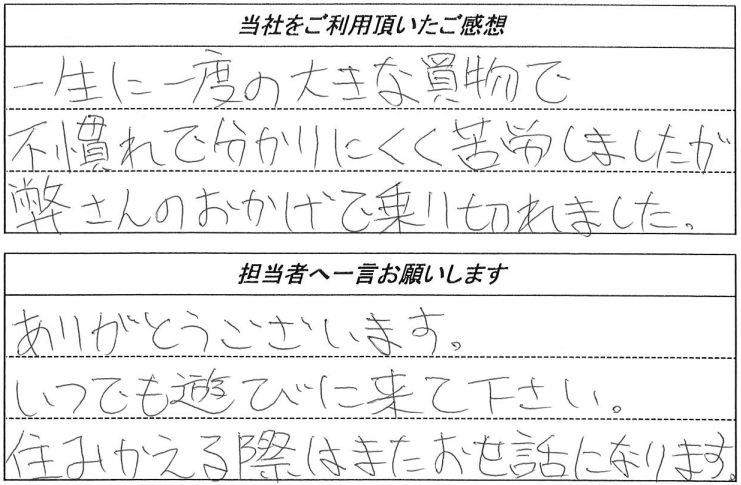 当社をご利用頂いたご感想
一生に一度の大きな買物で
不慣れで分かりにくく苦労しましたが
弊さんのおかげで乗り切れました。
担当者へ一言お願いします
ありがとうございます。
いつでも遊びに来て下さい。
住みかえる際はまたお世話になります。